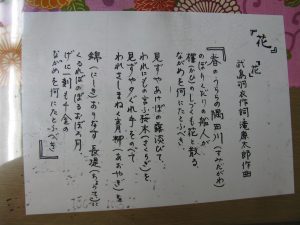 『花』
花
武島羽衣作詞 滝廉太郎作曲
『春のうららの隅田川(すみだがわ)
のぼりくだりの船人が
櫂(かい)のしづくも花と散る
ながめを何にたとふべき
見ずやあけぼの露浴びて
われにもの言ふ桜木(さくらぎ)を
見ずや夕ぐれ手をのべて
われさしまねく青柳(あおやぎ)を
錦(にしき)おりなす長堤(ちょうてい)に
くるればのぼるおぼろ月
げに一刻も千金の
ながめを何にたとふべき』